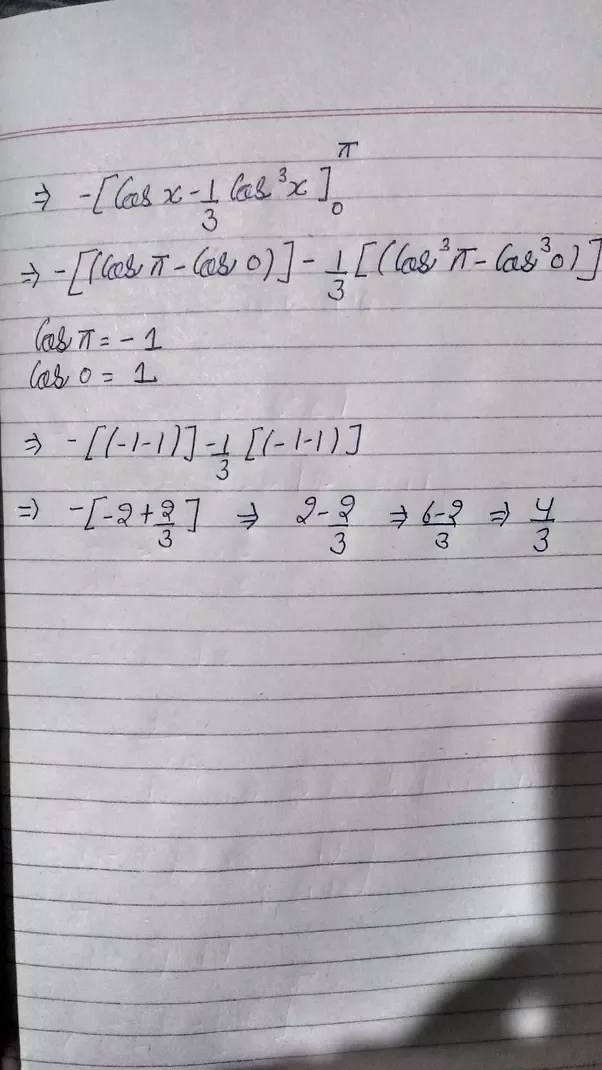 ⇒ -[Cos x - 1/3 Cos³x]₀^π
⇒ -[(Cos π - Cos 0)] - 1/3 [(Cos³π - Cos³0)]
Cos π = -1
Cos 0 = 1
⇒ -[(-1-1)] - 1/3 [(-1-1)]
⇒ -[-2 + 2/3] ⇒ 2 - 2/3 ⇒ 6-2/3 ⇒ 4/3